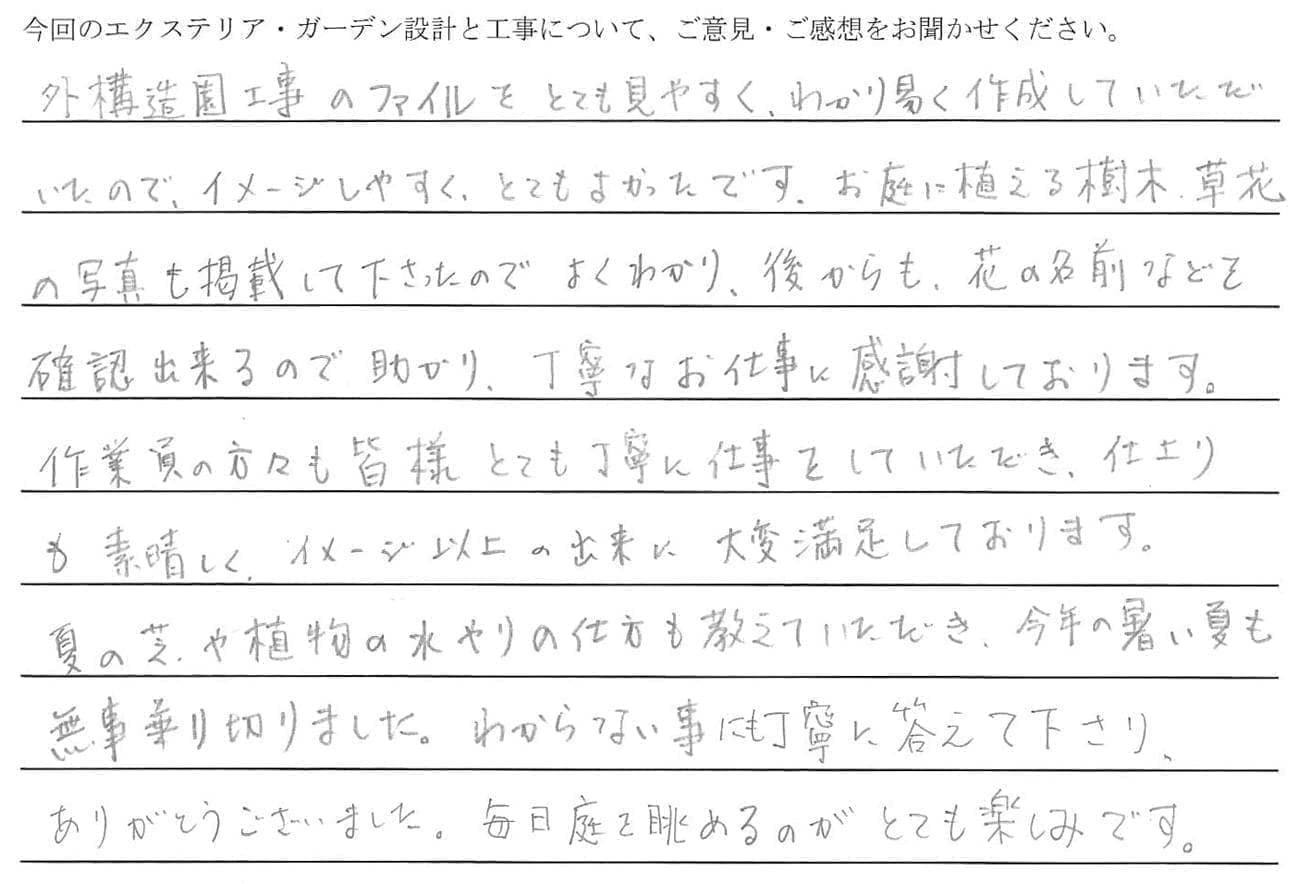 今回のエクステリア・ガーデン設計と工事について、ご意見・ご感想をお聞かせください。
外構造園工事のファイルをとても見やすく、わかり易く作成していただ
いたので、イメージしやすく、とてもよかったです。お庭に植える樹木、草花
の写真も掲載して下さったのでよくわかり、後からも、花の名前などを
確認出来るので助かり、丁寧なお仕事に感謝しております。
作業員の方々も皆様とても丁寧に仕事をしていただき、仕上り
も素晴しく、イメージ以上の出来に大変満足しております。
夏の芝や植物の水やりの仕方も教えていただき、今年の暑い夏も
無事乗り切りました。わからない事にも丁寧に答えて下さり、
ありがとうございました。毎日庭を眺めるのがとても楽しみです。